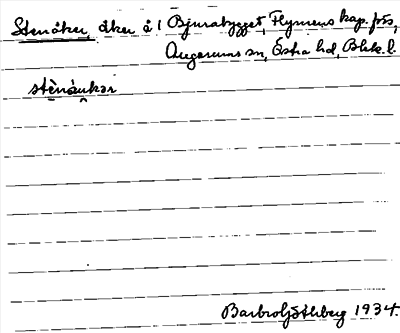 Stenåker åker å 1 Bjurabygget, Flymens kap. förs,
Augerums sn, Östra hd, Blek. l.
stènáukar
Barbro Ljöthberg 1934.